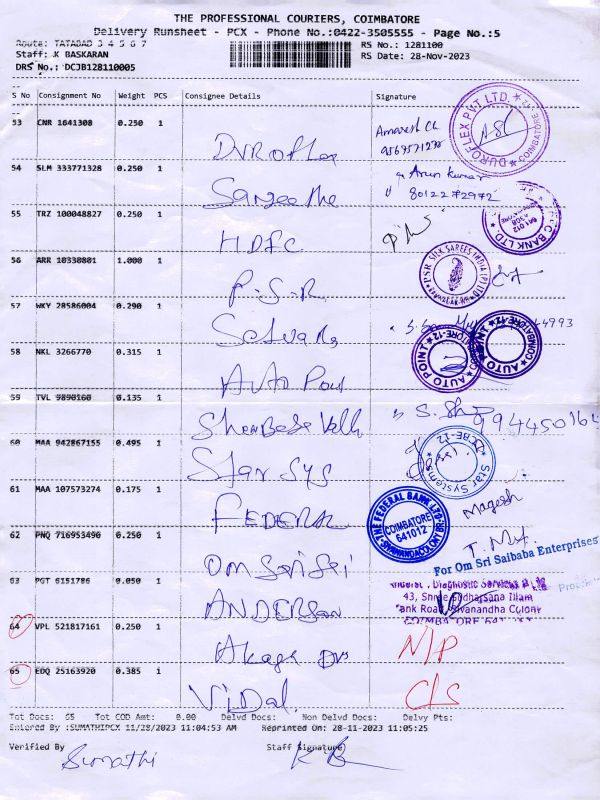 THE PROFESSIONAL COURIERS, COIMBATORE
Delivery Runsheet - PCX - Phone No.:0422-3505555 - Page No.:5
Route: TATABAD 3 4 5 6 7
Staff: K BASKARAN
DRS No.: DCJB128110005
RS No.: 1281100
RS Date: 28-Nov-2023
S No Consignment No Weight PCS Consignee Details Signature
53 CNR 1641308 0.250 1 Duroflex
Amaresh Ch
9569571278
DUROFLEX PVT LTD. COIMBATORE
54 SLM 333771328 0.250 1 Sangeetha
Arun Kumar
8012272972
55 TRZ 100048827 0.250 1 HDFC
C BANK LTD.
641 012
56 ARR 10330801 1.000 1 P-S-R
PSR SILK SAREES INDIA (P) LTD
57 WKY 28586004 0.290 1
4993
58 NKL 3266770 0.315 1 Auto Point
AUTO POINT COIMBATORE-12
AUTO POINT COIMBATORE-12
59 TVL 9890160 0.135 1
60 MAA 942867155 0.495 1 Star Sys
Star Systems CBE-12
61 MAA 107573274 0.175 1 FEDERAL
THE FEDERAL BANK LTD.
COIMBATORE
641012
SIVANANDACOLONY BR.
Magesh
62 PNQ 716953490 0.250 1 Om Sri Sai
For Om Sri Saibaba Enterprises
63 PGT 6151786 0.050 1 ANDERSON
Diagnostic Services
43, Shree Sudharsana Illam
Bank Road, Sivanandha Colony
COIMBATORE 641
64 VPL 521817161 0.250 1 N/P
65 EDQ 25163920 0.385 1 Vidal C/S
Tot Docs: 65 Tot COD Amt: 0.00 Delvd Docs: Non Delvd Docs: Delvy Pts:
Entered By :SUMATHIPCX 11/28/2023 11:04:53 AM Reprinted On: 28-11-2023 11:05:25
Verified By Staff Signature
Sumathi K B